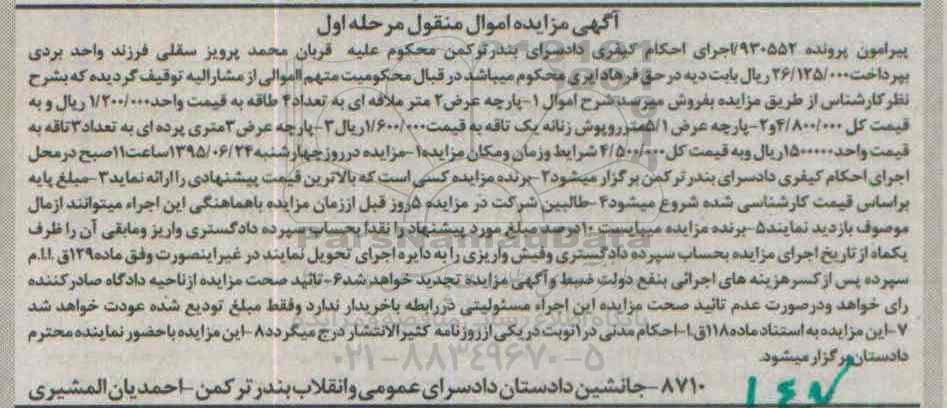 آگهی مزایده اموال منقول مرحله اول
پیرامون پرونده ۹۳۰۵۵۲/اجرای احکام کیفری دادسرای بندرترکمن محکوم علیه قربان محمد پرویز سقلی فرزند واحد بردی
بپرداخت۲۶/۱۲۵/۰۰۰ ریال بابت دیه درحق فرهاد ایری محکوم میباشد در قبال محکومیت متهم اموالی از مشارالیه توقیف گردیده که بشرح
نظرکارشناس از طریق مزایده بفروش میرسد شرح اموال ۱-پارچه عرض۲ متر ملافه ای به تعداد۴ طاقه به قیمت واحد۱/۲۰۰/۰۰۰ ریال و به
قیمت کل ۴/۸۰۰/۰۰۰و۲-پارچه عرض ۱/۵متر روپوش زنانه یک تاقه به قیمت۱/۶۰۰/۰۰۰ریال۳-پارچه عرض۳متری پرده ای به تعداد۳تاقه به
قیمت واحد۱۵۰۰۰۰۰ریال وبه قیمت کل۴/۵۰۰/۰۰۰ شرایط وزمان ومکان مزایده۱-مزایده درروزچهارشنبه۱۳۹۵/۰۶/۲۴ساعت۱۱صبح درمحل
اجرای احکام کیفری دادسرای بندر ترکمن برگزار میشود۲-برنده مزایده کسی است که بالاترین قیمت پیشنهادی راارائه نماید۳-مبلغ پایه
براساس قیمت کارشناسی شده شروع میشود۴-طالبین شرکت در مزایده ۵روز قبل اززمان مزایده باهماهنگی این اجراء میتوانند ازمال
موصوف بازدید نمایند۵-برنده مزایده میبایست ۱۰درصد مبلغ مورد پیشنهاد را نقداً بحساب سپرده دادگستری واریز ومابقی آن را ظرف
یکماه ازتاریخ اجرای مزایده بحساب سپرده دادگستری وفیش واریزی را به دایره اجرای تحویل نمایند در غیراینصورت وفق ماده۱۲۹ق.ا.ا.م
سپرده پس از کسر هزینه های اجرائی بنفع دولت ضبط وآگهی مزایده تجدید خواهد شد۶-تائید صحت مزایده ازناحیه دادگاه صادرکننده
رای خواهد ودرصورت عدم تائید صحت مزایده این اجراء مسئولیتی دررابطه باخریدار ندارد وفقط مبلغ تودیع شده عودت خواهد شد
۷-این مزایده به استناد ماده۱۱۸ق.ا-احکام مدنی در۱نوبت در یکی ازروزنامه کثیرالانتشار درج میگردد۸-این مزایده باحضور نماینده محترم
دادستان برگزار میشود.
۸۷۱۰-جانشین دادستان دادسرای عمومی وانقلاب بندر ترکمن-احمدیان المشیری
۱۴۷
ParsNamadData
۰۲۱-۸۸۳۴۹۶۷۰-۵